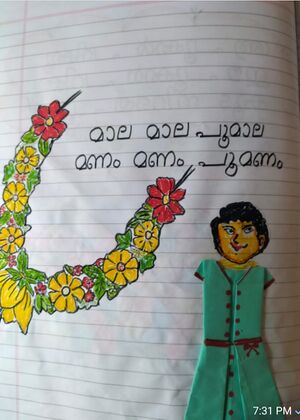 മാല മാല പൂമാല
മണം മണം പൂമണം
7:31 PM